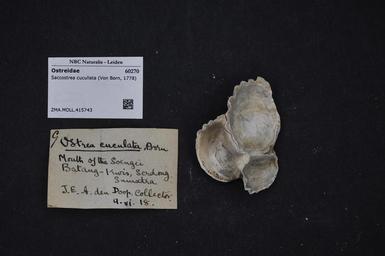 NBC Naturalis - Leiden
Ostreidae 60270
Saccostrea cuculata (Von Born, 1778)
ZMA.MOLL.415743
Ostrea cuculata Born
Mouth of the Soengei
Batang-Kwis, Serdang.
Sumatra
J.E.A. den Doop. Collector
9-XI-18.